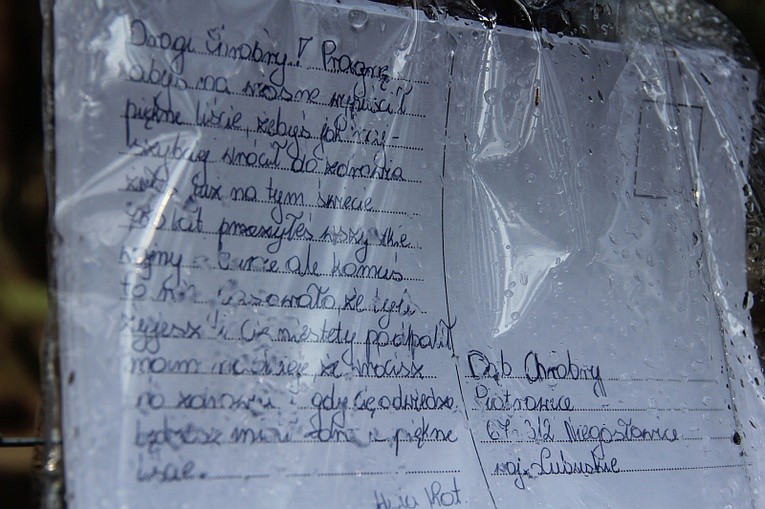 Drogi Chrobry! Pragnę
abyś na wiosnę wypuścił
piękne liście, żebyś jak naj-
szybciej wrócił do zdrowia
na tym świecie
lat przeżyłeś wszystkie
wojny ale komuś
to nie że żyli
żyjesz i Cię niestety podpalił
mam nadzieję, że wrócisz
do zdrowia i gdy Cię odwiedzę
będziesz miał piękne
liście.
Kot.
Dąb Chrobry
Piotrowice
67-312 Niegosławice
woj. Lubuskie